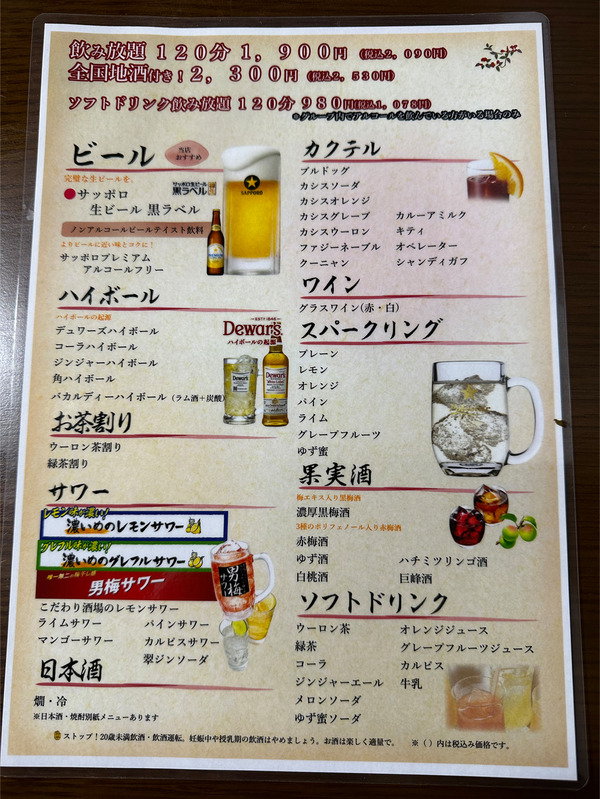 飲み放題 120分 1,900円 (税込2,090円)
全国地酒付き！2,300円 (税込2,530円)
ソフトドリンク飲み放題 120分 980円(税込1,078円)
※グループ内でアルコールを飲んでいる方がいる場合のみ
ビール
当店
おすすめ
完璧な生ビールを、
サッポロ生ビール
黒ラベル
●サッポロ
生ビール 黒ラベル
SAPPORO
ノンアルコールビールテイスト飲料
よりビールに近い味とコクに！
サッポロプレミアム
アルコールフリー
ハイボール
ハイボールの起源
デュワーズハイボール
コーラハイボール
ジンジャーハイボール
角ハイボール
バカルディーハイボール (ラム酒＋炭酸)
Dewar's
ハイボールの起源
Dewar's
Dewar's
お茶割り
ウーロン茶割り
緑茶割り
サワー
レモン味が濃い！
濃いめのレモンサワー
グレフル味が濃い！
濃いめのグレフルサワー
男梅サワー
男梅
こだわり酒場のレモンサワー
ライムサワー
パインサワー
マンゴーサワー
カルピスサワー
翠ジンソーダ
日本酒
燗・冷
※日本酒・焼酎別紙メニューあります
カクテル
ブルドッグ
カシスソーダ
カシスオレンジ
カシスグレープ
カルーアミルク
カシスウーロン
キティ
ファジーネーブル
オペレーター
クーニャン
シャンディガフ
ワイン
グラスワイン(赤・白)
スパークリング
プレーン
レモン
オレンジ
パイン
ライム
グレープフルーツ
ゆず蜜
果実酒
梅エキス入り黒梅酒
濃厚黒梅酒
3種のポリフェノール入り赤梅酒
赤梅酒
ゆず酒
ハチミツリンゴ酒
白桃酒
巨峰酒
ソフトドリンク
ウーロン茶
オレンジジュース
緑茶
グレープフルーツジュース
コーラ
カルピス
ジンジャーエール
牛乳
メロンソーダ
ゆず蜜ソーダ
ストップ！20歳未満飲酒・飲酒運転。妊娠中や授乳期の飲酒はやめましょう。お酒は楽しく適量で。 ※（ ）内は税込み価格です。